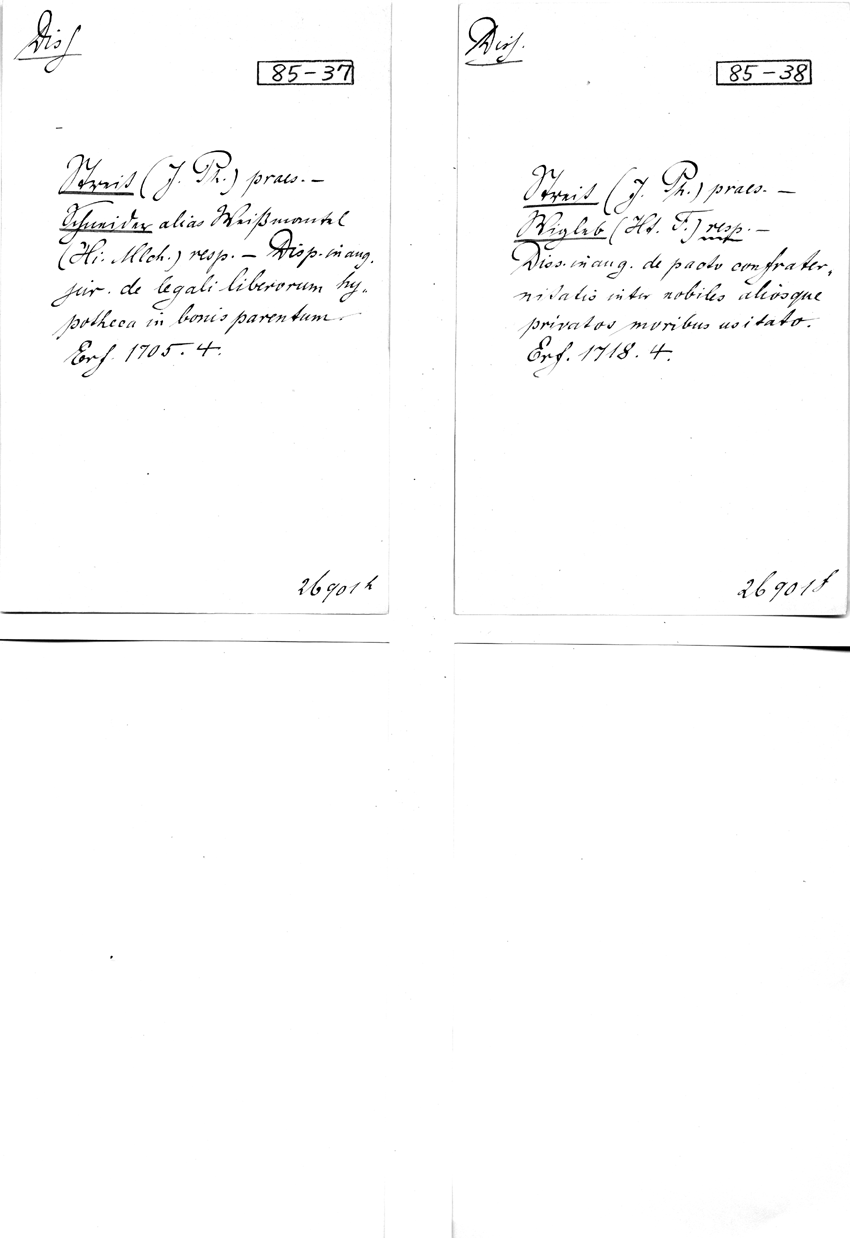 Diss
85-37
Streit (J. Ph.) praes. —
Schneider alias Weißmantel
(Hi. Mlch.) resp. — Disp. inaug.
jur. de legali liberorum hy-
potheca in bonis parentum.
Erf. 1705. 4.
26901h
Diss.
85-38
Streit (J. Ph.) praes. —
Wigleb (Ht. F.) resp. —
Diss. inaug. de pacto confrater-
nitatis inter nobiles aliosque
privatos moribus usitato.
Erf. 1718. 4.
26901f